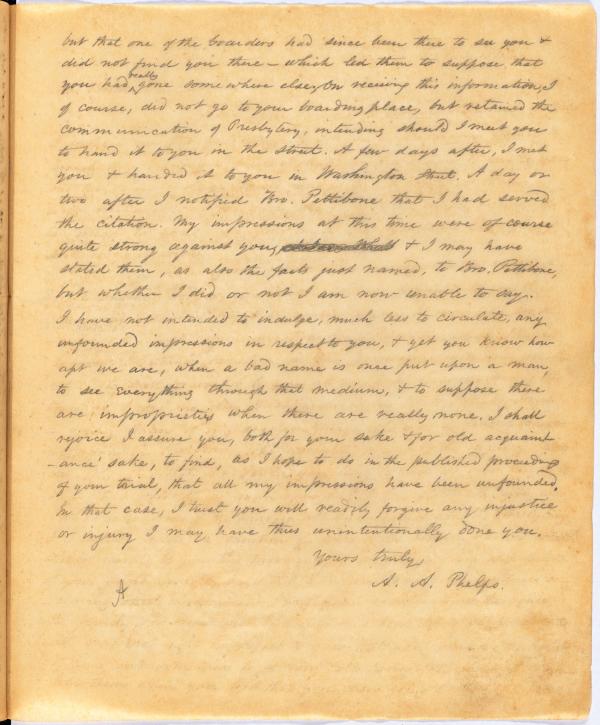 but that one of the boarders had since been there to see you &
did not find you there – which led them to suppose that
you had really gone some where else. On receiving this information, I
of course, did not go to your boarding place, but retained the
communication of Presbytery, intending should I meet you
to hand it to you in the street. A few days after, I met
you & handed it to you in Washington Street. A day or
two after I notified Bro. Pettibone that I had served
the citation. My impressions at this time were of course
quite strong against you, & I may have
stated them, as also the facts just named, to Bro. Pettibone,
but whether I did or not I am now unable to say.
I have not intended to indulge, much less to circulate, any
unfounded impressions in respect to you, & yet you know how
apt we are, when a bad name is once put upon a man,
to see everything through that medium, & to suppose there
are improprieties when there are really none. I shall
rejoice I assure you, both for your sake & for old acquaint
-ance' sake, to find, as I hope to do in the published proceedings
of your trial, that all my impressions have been unfounded.
In that case, I trust you will readily forgive any injustice
or injury I may have thus unintentionally done you.
Yours truly
A. A. Phelps.
A